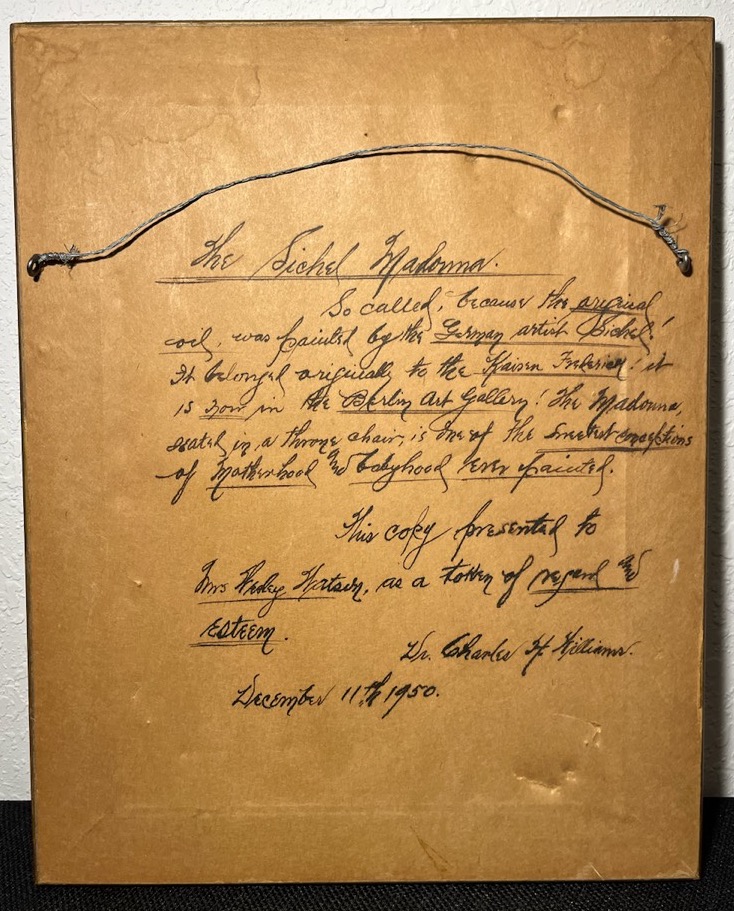 The Sichel Madonna.
So called, because the original
oil, was painted by the German artist Sichel!
It belonged originally to the Kaiser Frederick! it
is now in the Berlin Art Gallery! The Madonna,
seated in a throne chair, is one of the sweetest conceptions
of Motherhood and babyhood ever painted.
This copy presented to
Mrs Wesley Watson, as a token of regard and
esteem.
Dr. Charles H. Williams.
December 11th 1950.